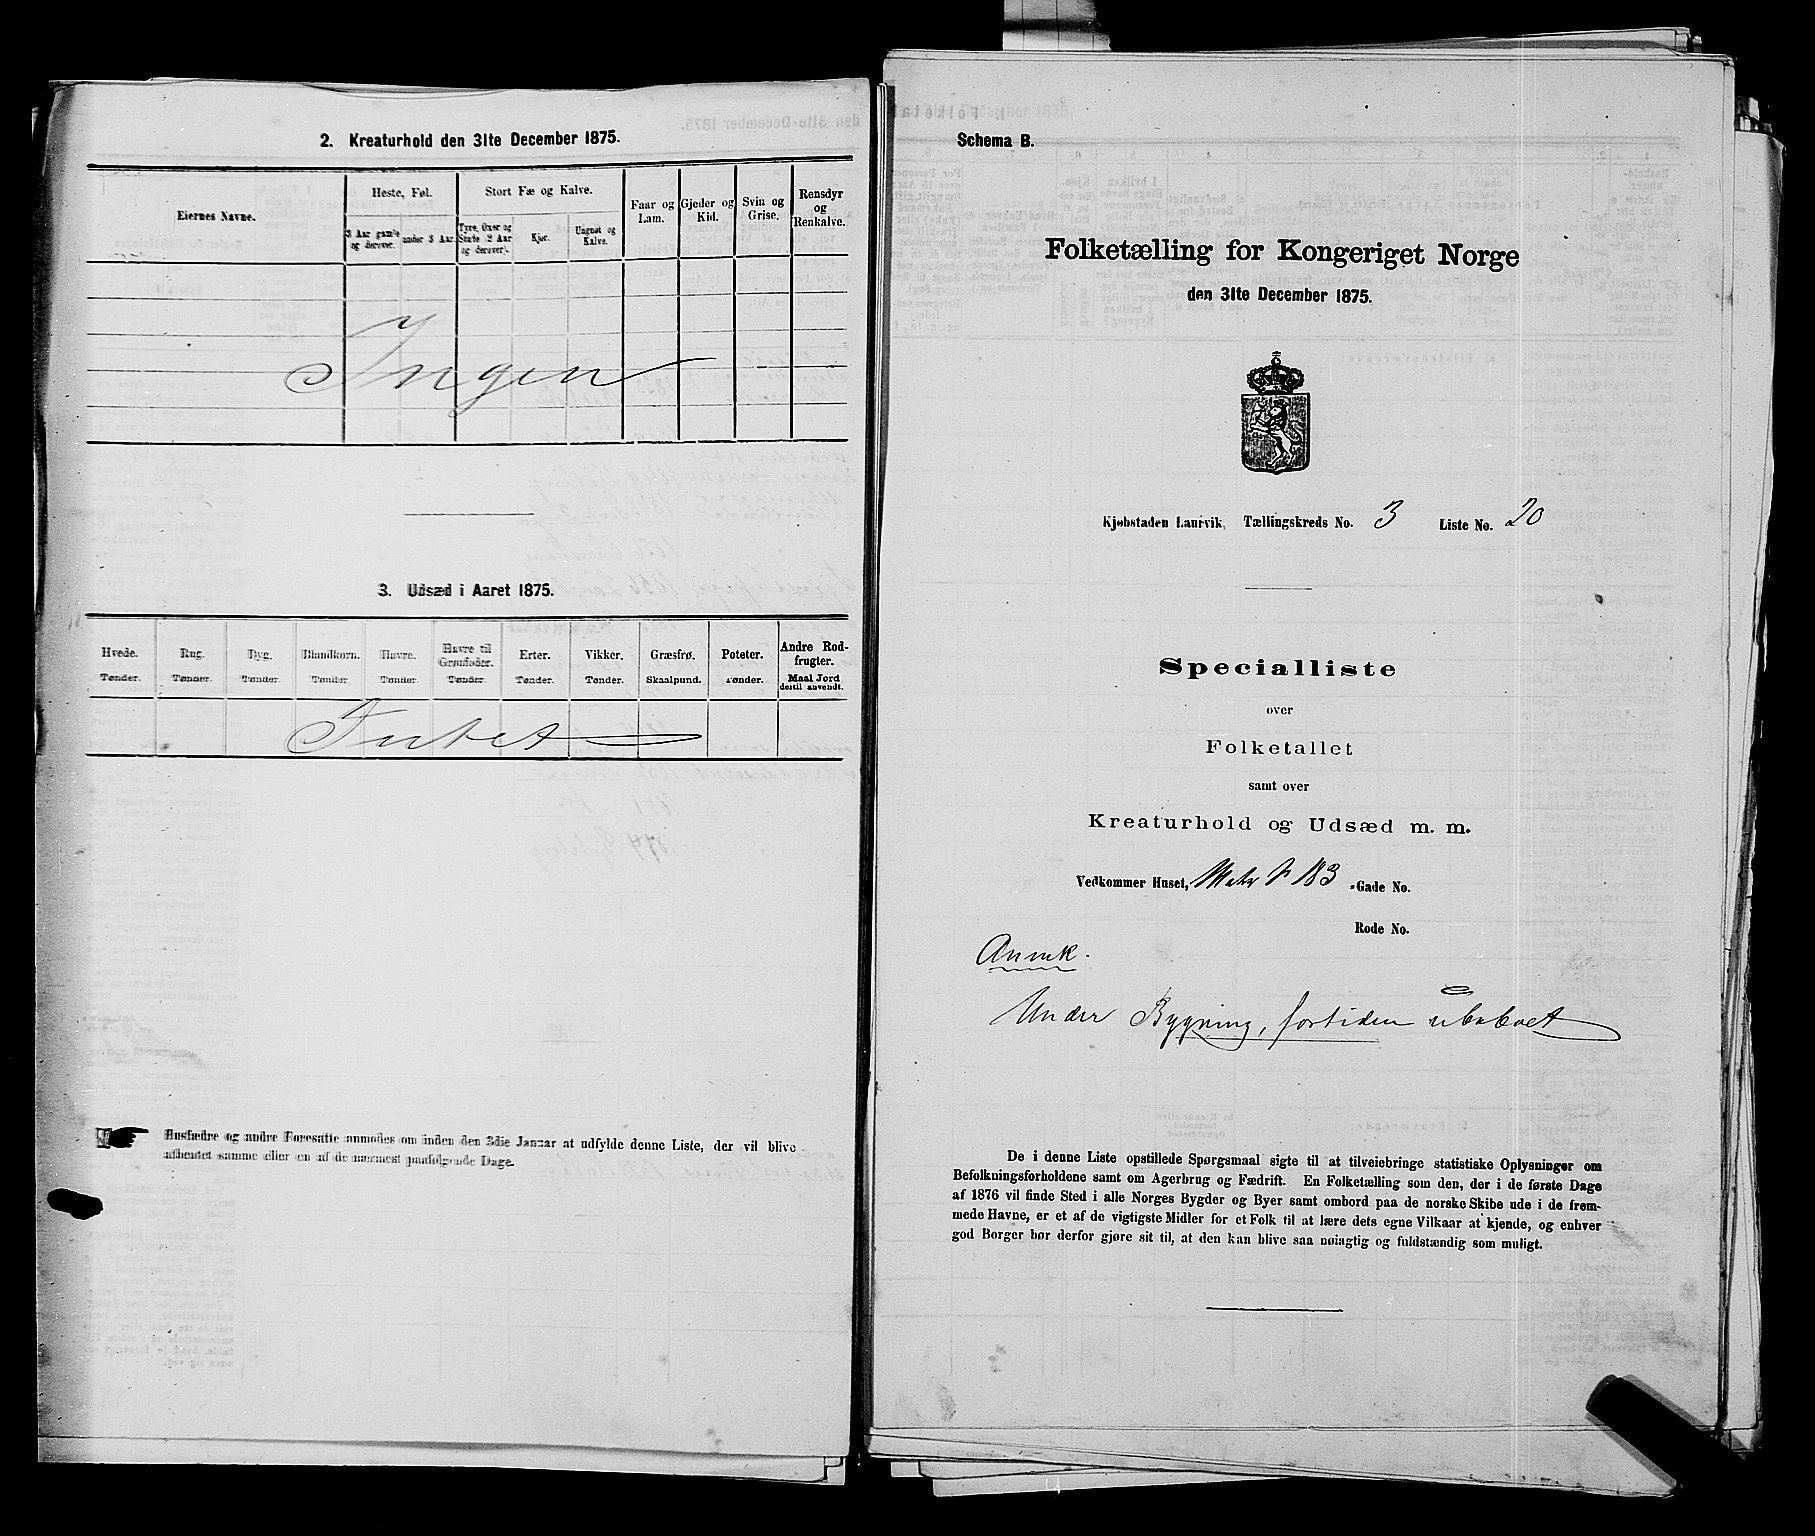 2. Kreaturhold den 31te December 1875.
Eiernes Navne.
Heste, Føl.
3 Aar gamle og derover.
under 3 Aar.
Stort Fæ og Kalve.
Tyre, Oxer og Stude (2 Aar og derover).
Kjør.
Ungnøt og Kalve.
Faar og Lam.
Gjeder og Kid.
Svin og Grise.
Rensdyr og Renkalve.
Ingen
3. Udsæd i Aaret 1875.
Hvede. Rug. Byg. Blandkorn. Havre. Havre til Grønfoder. Erter. Vikker. Græsfrø. Poteter. Andre Rodfrugter.
Tønder. Tønder. Tønder. Tønder. Tønder. Tønder. Tønder. Tønder. Skaalpund. Tønder. Maal Jord dertil anvendt.
Intet
Husfædre og andre Foresatte anmodes om inden den 3die Januar at udfylde denne Liste, der vil blive
afhentet samme eller en af de nærmest paafølgende Dage.
Schema B.
Folketælling for Kongeriget Norge
den 31te December 1875.
Kjøbstaden Laurvik, Tællingskreds No. 3 Liste No. 20
Specialliste
over
Folketallet
samt over
Kreaturhold og Udsæd m. m.
Vedkommer Huset, Matr № 183 -Gade No.
Rode No.
Anmk.
Under Bygning, fortiden ubeboet
De i denne Liste opstillede Spørgsmaal sigte til at tilveiebringe statistiske Oplysninger om
Befolkningsforholdene samt om Agerbrug og Fædrift. En Folketælling som den, der i de første Dage
af 1876 vil finde Sted i alle Norges Bygder og Byer samt ombord paa de norske Skibe ude i de frem-
mede Havne, er et af de vigtigste Midler for et Folk til at lære dets egne Vilkaar at kjende, og enhver
god Borger bør derfor gjøre sit til, at den kan blive saa nøiagtig og fuldstændig som muligt.